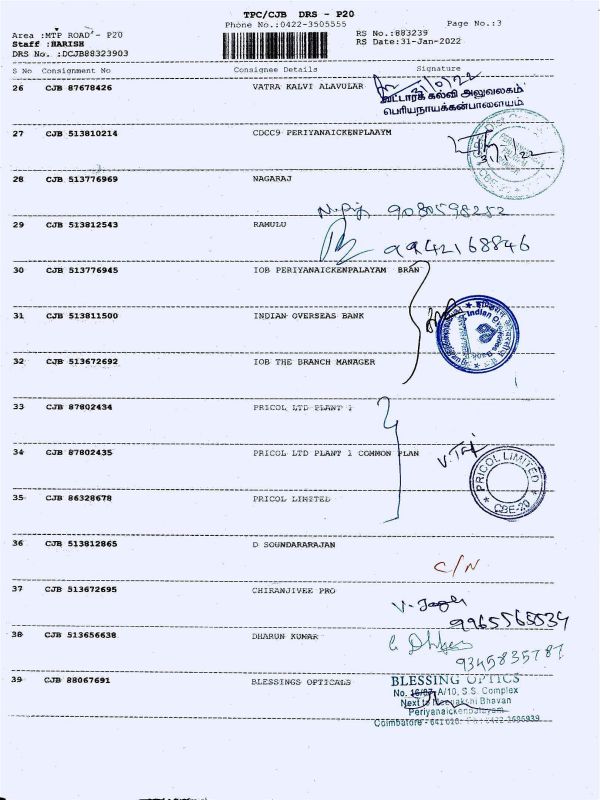 TPC/CJB DRS - P20
Phone No.:0422-3505555
Page No.:3
Area :MTP ROAD - P20
RS No.:883239
Staff :HARISH
RS Date:31-Jan-2022
DRS No. :DCJB88323903
S No Consignment No Consignee Details Signature
26 CJB 87678426 VATRA KALVI ALAVULAR
வட்டாரக் கல்வி அலுவலகம்
பெரியநாயக்கன்பாளையம்
27 CJB 513810214 CDCC9 PERIYANAICKENPLAAYM
28 CJB 513776969 NAGARAJ
9080598252
29 CJB 513812543 RAMULU
9942168846
30 CJB 513776945 IOB PERIYANAICKENPALAYAM BRAN
31 CJB 513811500 INDIAN OVERSEAS BANK
32 CJB 513672692 IOB THE BRANCH MANAGER
33 CJB 87802434 PRICOL LTD PLANT 1
34 CJB 87802435 PRICOL LTD PLANT 1 COMMON PLAN
PRICOL LIMITED
CBE-20
35 CJB 86328678 PRICOL LIMITED
36 CJB 513812865 D SOUNDARARAJAN
C/N
37 CJB 513672695 CHIRANJIVEE PRO
38 CJB 513656638 DHARUN KUMAR
9345835787
39 CJB 88067691 BLESSINGS OPTICALS
BLESSING OPTICS
No. 16/87, A/10, S.S. Complex
Next to Meenakshi Bhavan
Periyanaickenpalayam
Coimbatore - 641 020.